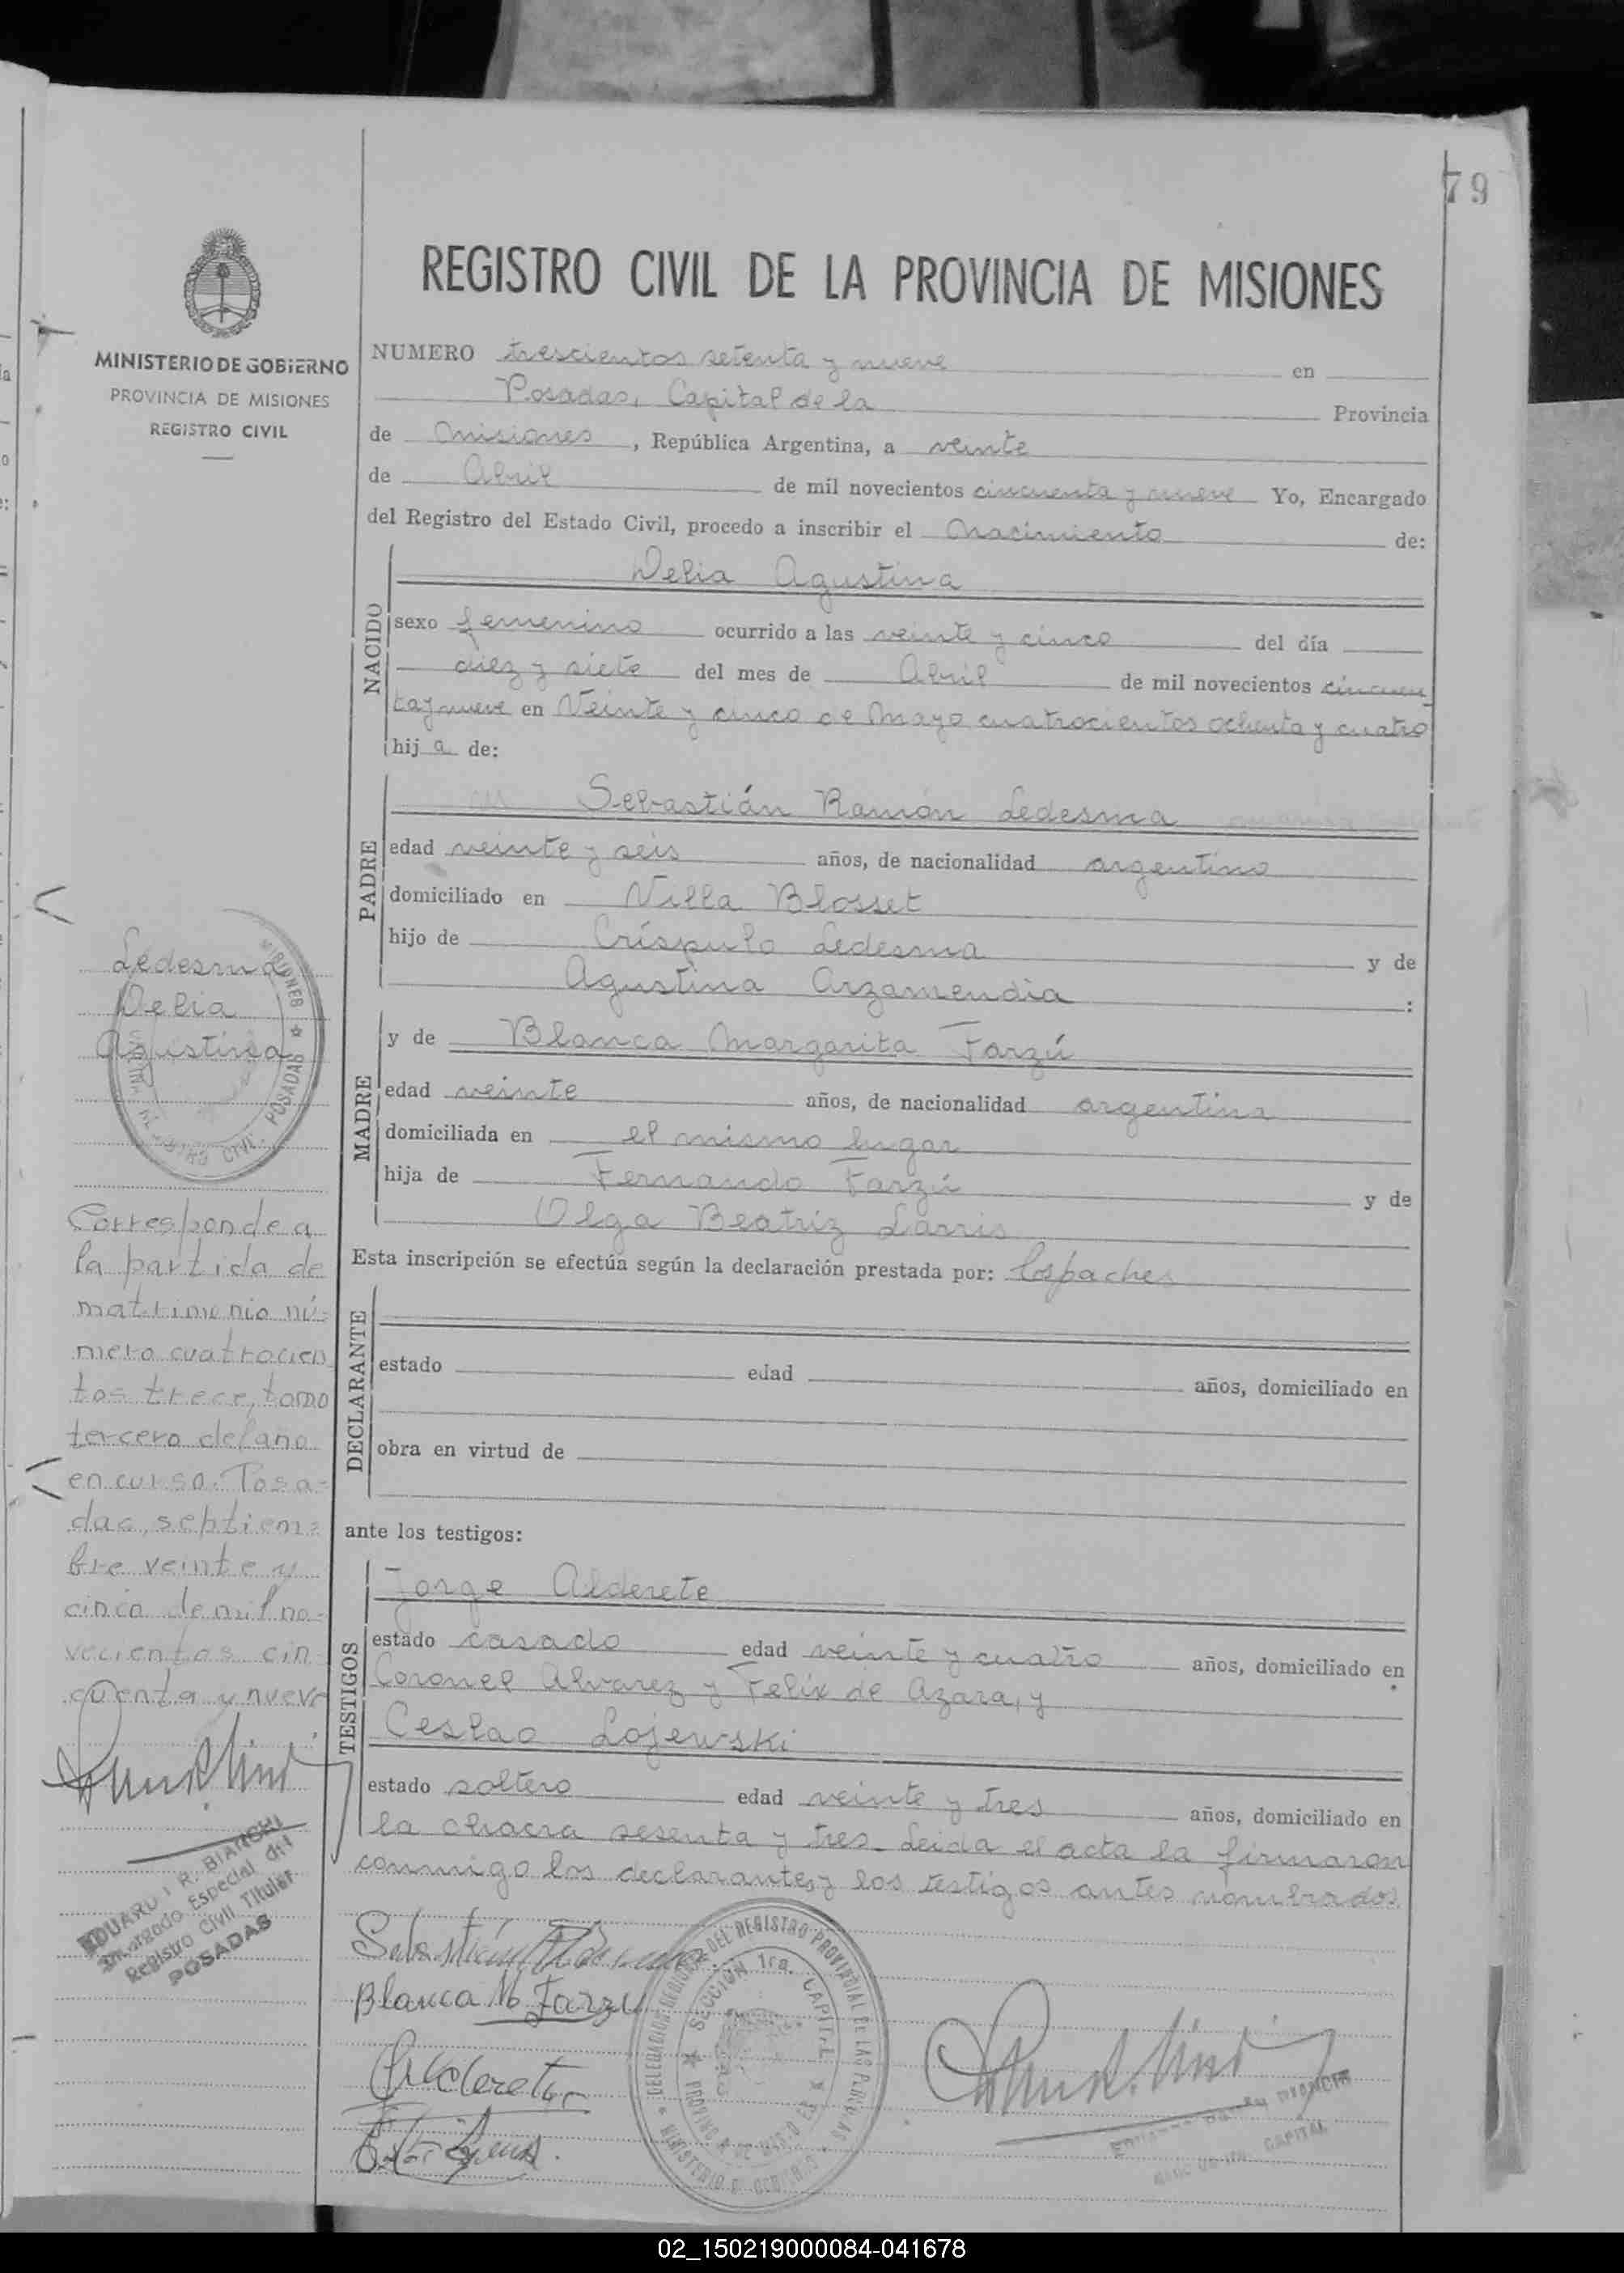 79
REGISTRO CIVIL DE LA PROVINCIA DE MISIONES
MINISTERIO DE GOBIERNO
PROVINCIA DE MISIONES
REGISTRO CIVIL
NUMERO trescientos setenta y nueve en
Posadas, Capital de la Provincia
de Misiones, República Argentina, a veinte
de Abril de mil novecientos cincuenta y nueve Yo, Encargado
del Registro del Estado Civil, procedo a inscribir el Nacimiento de:
NACIDO
Delia Agustina
sexo femenino ocurrido a las veinte y cinco del día
diez y siete del mes de Abril de mil novecientos cincuen
ta y nueve en Veinte y cinco de Mayo cuatrocientos ochenta y cuatro
hij a de:
PADRE
Sebastián Ramón Ledesma
edad veinte y seis años, de nacionalidad argentino
domiciliado en Villa Blosset
hijo de Críspulo Ledesma y de
Agustina Arzamendia :
MADRE
y de Blanca Margarita Farzú
edad veinte años, de nacionalidad argentina
domiciliada en el mismo lugar
hija de Fernando Farzú y de
Olga Beatriz Larris
Esta inscripción se efectúa según la declaración prestada por: los padres
DECLARANTE
estado edad años, domiciliado en
obra en virtud de
ante los testigos:
TESTIGOS
Jorge Alderete
estado casado edad veinte y cuatro años, domiciliado en
Coronel Alvarez y Felix de Azara, y
Ceslao Lojewski
estado soltero edad veinte y tres años, domiciliado en
la chacra sesenta y tres. Leida el acta la firmaron
conmigo los declarantes y los testigos antes nombrados.
Blanca M Farzú
DELEGACION DEL REGISTRO PROVINCIAL DE LAS PERSONAS
SECCION 1ra. CAPITAL
Ledesma
Delia
Agustina
MISIONES
POSADAS
CIVIL
Corresponde a
la partida de
matrimonio nú-
mero cuatrocien
tos trece, tomo
tercero del año
en curso. Posa-
das, septiem-
bre veinte y
cinco de mil no-
vecientos cin
cuenta y nueve
EDUARDO R. BIANCHI
Encargado Especial del
Registro Civil Titular
POSADAS
CAPITAL
02_150219000084-041678